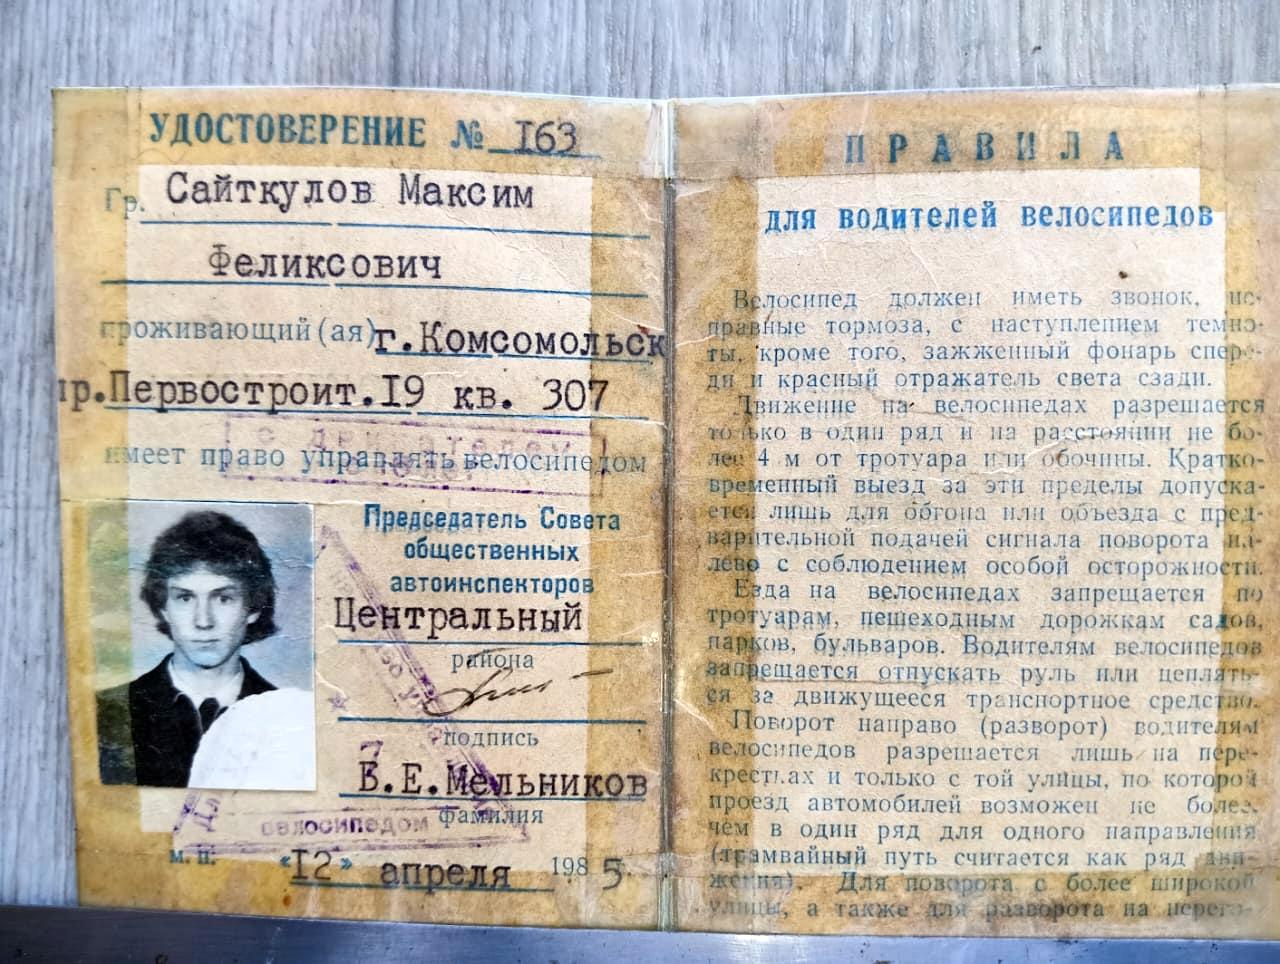 УДОСТОВЕРЕНИЕ № I63
Гр. Сайткулов Максим
Феликсович
проживающий (ая) г.Комсомольск
пр.Первостроит.I9 кв. 307
с двигателем
имеет право управлять велосипедом
Председатель Совета
общественных
автоинспекторов
Центральный
района
подпись
Е.Мельников
фамилия
велосипедом
м. п. «I2» апреля 1985
ПРАВИЛА
для водителей велосипедов
Велосипед должен иметь звонок, ис-
правные тормоза, с наступлением темно-
ты, кроме того, зажженный фонарь спере-
ди и красный отражатель света сзади.
Движение на велосипедах разрешается
только в один ряд и на расстоянии не бо-
лее 4 м от тротуара или обочины. Кратко-
временный выезд за эти пределы допуска-
ется лишь для обгона или объезда с пред-
варительной подачей сигнала поворота на-
лево с соблюдением особой осторожности.
Езда на велосипедах запрещается по
тротуарам, пешеходным дорожкам садов,
парков, бульваров. Водителям велосипедов
запрещается отпускать руль или цеплять-
ся за движущееся транспортное средство.
Поворот направо (разворот) водителям
велосипедов разрешается лишь на пере-
крестках и только с той улицы, по которой
проезд автомобилей возможен не более,
чем в один ряд для одного направления
(трамвайный путь считается как ряд дви-
жения). Для поворота с более широкой
улицы, а также для разворота на перего-